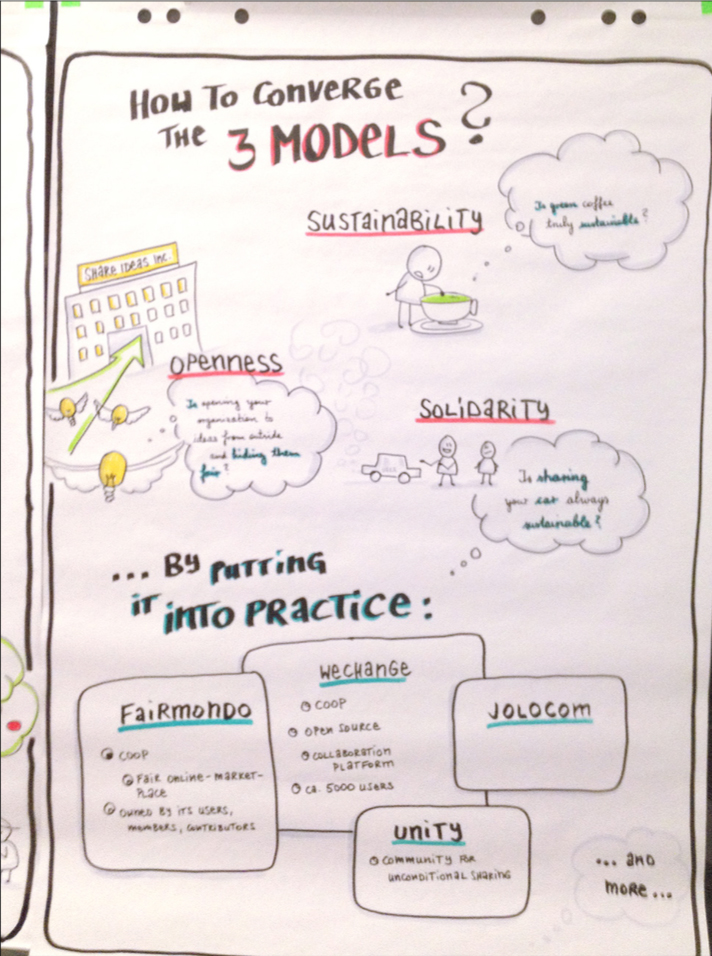 HOW TO CONVERGE
THE 3 MODELS?
SUSTAINABILITY
Is green coffee
truly sustainable?
SHARE IDEAS INC.
OPENNESS
Is opening your
organization to
ideas from outside
and hiding them
fair?
SOLIDARITY
Is sharing
your car always
sustainable?
... BY PUTTING
IT INTO PRACTICE:
FAIRMONDO
COOP
FAIR ONLINE-MARKET-
PLACE
OWNED BY ITS USERS,
MEMBERS, CONTRIBUTORS
WECHANGE
COOP
OPEN SOURCE
COLLABORATION
PLATFORM
CA. 5000 USERS
JOLOCOM
UNITY
COMMUNITY FOR
UNCONDITIONAL SHARING
... AND
MORE...